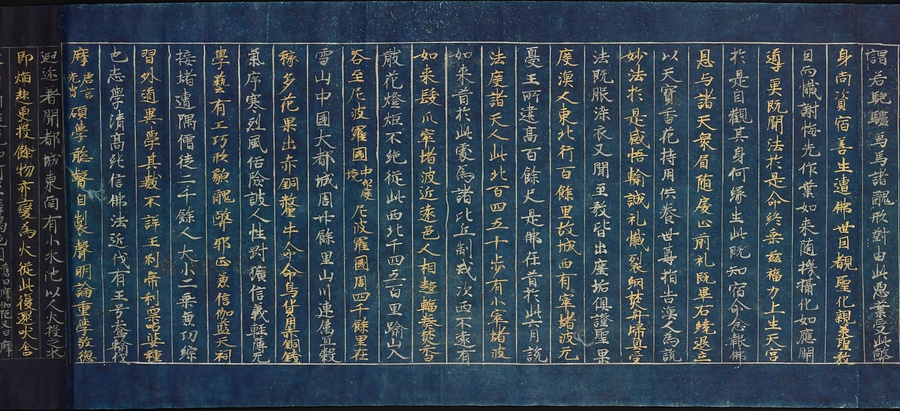 謂若駞驢馬馬諸醜形對由此惡業受此弊
身尚資宿善生遭佛世目覩聖化親承聖教
因而懺謝悔先作業如來随機攝化如應開
導魚既聞法於是命終乘茲福力上生天宮
於是自觀其身何緣生此既知宿命念報佛
恩与諸天衆肩随戾止前礼既畢右繞退立
以天寶香花持用供養世尊指告漁人為說
妙法於是感悟輸誠礼懺裂網焚舟歸真受
法既服染衣又聞至教皆出塵垢俱證聖果
度漁人東北行百餘里故城西有窣堵波无
憂王所建高百餘尺是佛在昔於此六月說
法度諸天人此北百四五十步有小窣堵波
如來昔於此處為諸比丘制戒次西不遠有
如来髮爪窣堵波近遠邑人相趍輻湊焚香
散花燈炬不絶從此西北千四五百里踰山入
谷至尼波羅國中印度境尼波羅國周四千餘里在
雪山中國大都城周廿餘里山川連属宜穀
稼多花果出赤銅犛牛命命鳥貨用銅錢
氣序寒烈風俗險詖人性剛獷信義輕薄无
學藝有工巧形貌醜弊邪正兼信伽藍天祠
接堵連隅僧徒二千餘人大小二乗兼功綜
習外道異學其數不詳王刹帝利栗呫婆種
也志學清高純信佛法近代有王号鴦輸伐
摩唐言光胄碩學聡叡自製聲明論重學敬德
遐迩著聞都城東南有小水池以人火投之水
即焰起更投餘物亦變為火從此復還吠舍